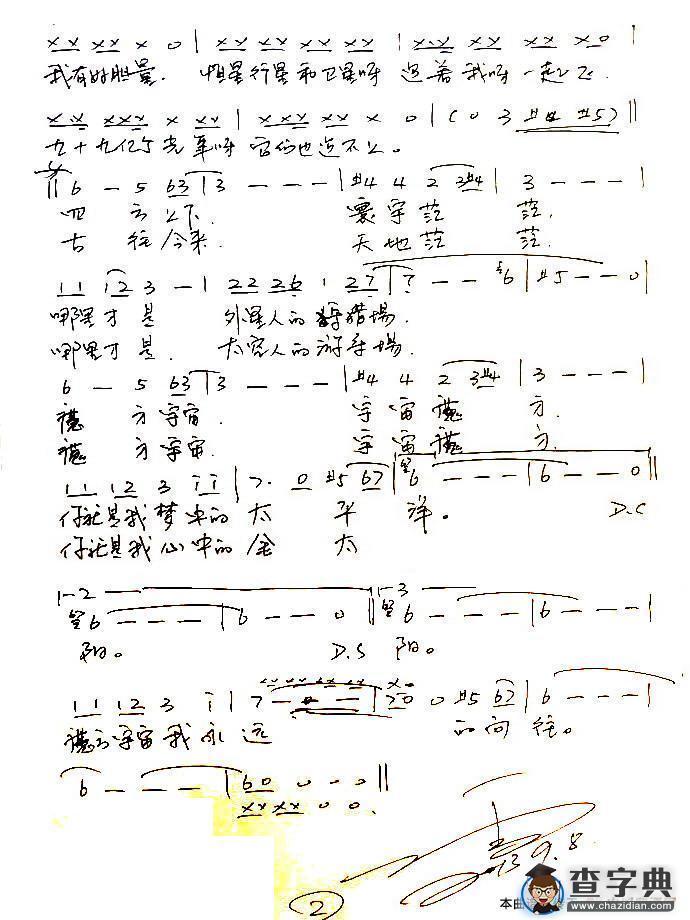 xx xx x 0 | xx xx xx xx | xx xx xx x0 |
我有好胆量. 恒星行星和卫星呀 追着我呀一起飞.
xx xxx x xx | xxx xx x 0 | (0 3 #4 #5) ||
九十九亿光年呀 它们也追不上。
|| 6 - 5 63 | 3 - - - | #4 4 2 3#4 | 3 - - - |
四方上下. 寰宇茫茫.
古往今来. 天地茫茫.
11 12 3 - | 22 26 1 27 | 7 - - #6 | #5 - - 0 |
哪里才是 外星人的狩猎場.
哪里才是. 太空人的游乐場.
6 - 5 63 | 3 - - - | #4 4 2 3#4 | 3 - - - |
方宇宙. 宇宙 方.
方宇宙. 宇宙 方.
11 12 3 ii | 7. 0 #5 67 | 6 - - - | 6 - - 0 ||
你就是我梦中的太平洋。 D.C
你就是我心中的金太
1-2 -3
6 - - - | 6 - - 0 || 6 - - - | 6 - - - |
阳。 D.S 阳。
11 12 3 i | 7 - - - | 70 0 #5 67 | 6 - - - |
方宇宙我永远 的向往。
6 - - - | 60 0 - 0 ||
xx xx 0 0.
13.9.8
②
本由
查字典
www.chazidian.com